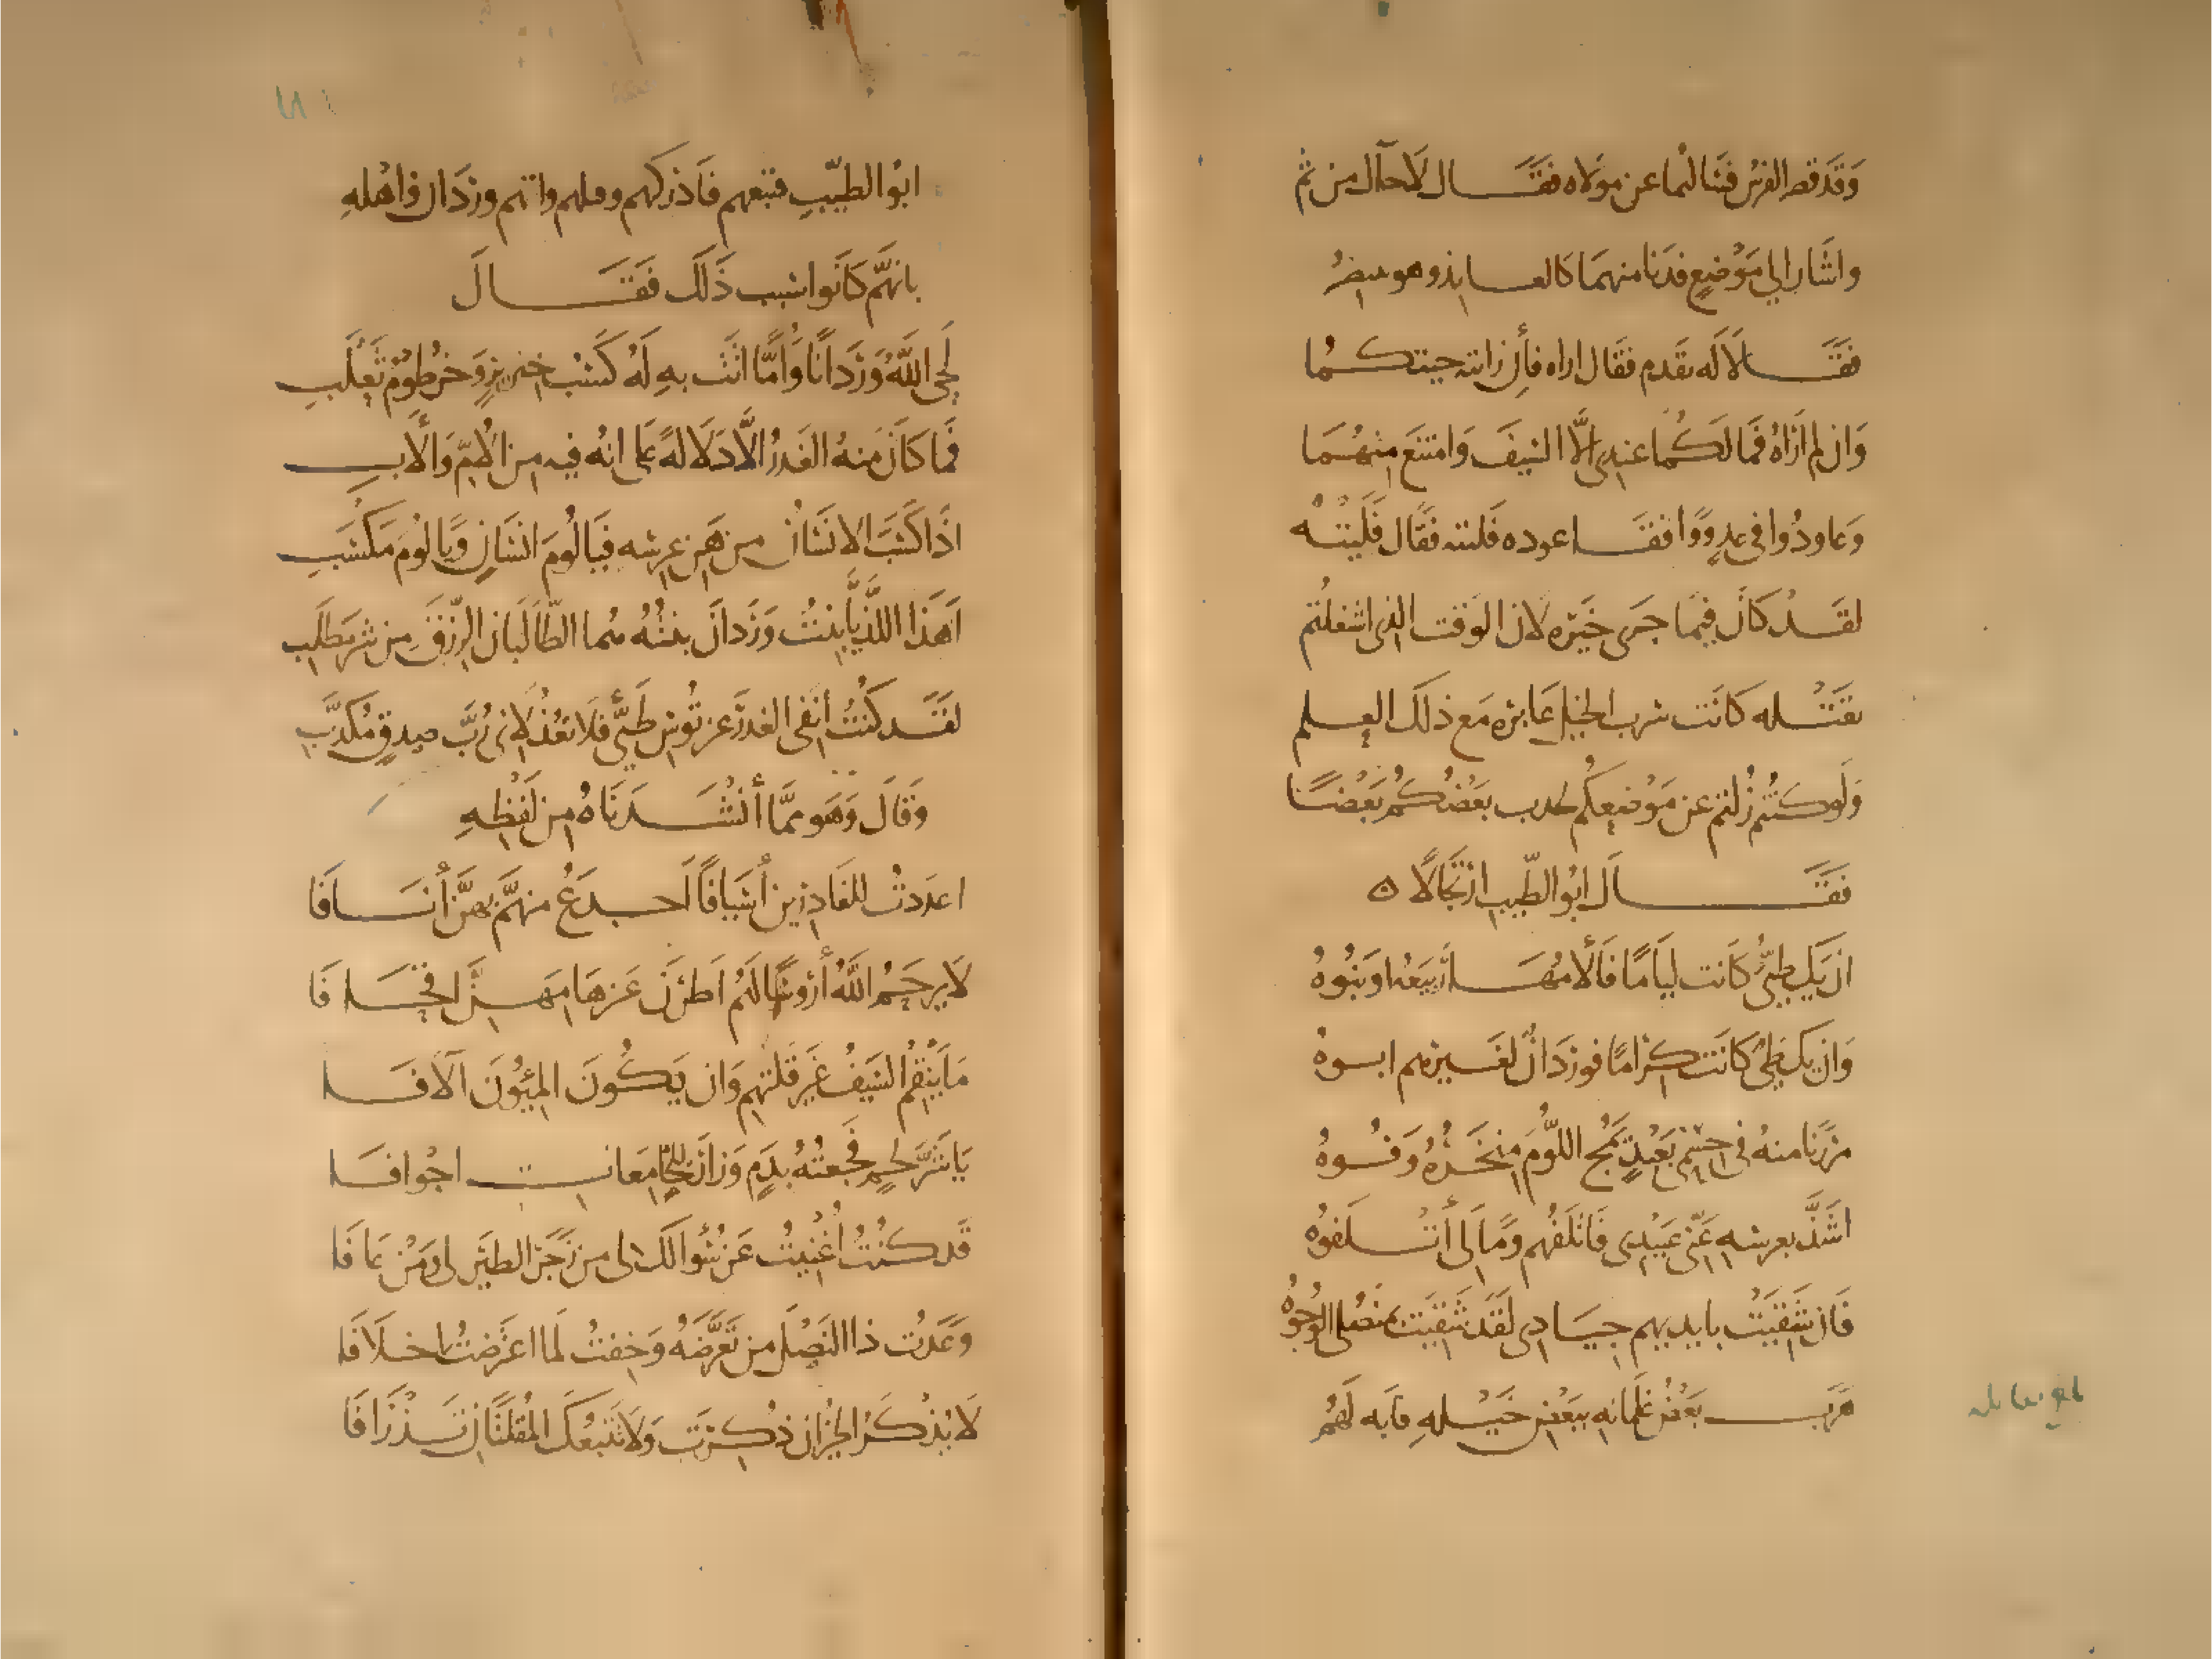 وَقَد قط الفرس فسالهما عن مولاه فقال لاحدهما من ثم
واشار الي مَوْضعٍ فدنا منهما كالعايذ وهو يبصر
فقالا له تقدم فقال اراه فأن رايته جيتكما
وَان لم ارَاهُ فما لَكما عندى إلَّا السَيفَ وَامتنع منهما
وَعاودُوا في غدٍ ووافقا
لقَد كانَ فيما جَرى خَيره لان الوقت الذى اشتغلتم
بقتله كانت سرب الخيل عابره مَع ذلك العلم
وَلَو كنتم زُلتم عن مَوْضعكم بَعْضُكُم بَعْضًا
فقَالَ ابُو الطيّب ارتجَالًا ه
ان يَك طيئٌ كانت ليَامًا فَألأمُهَا رَبيعَةُ او بَنُوهُ
وَان يك طيئ كانَت كِرَامًا فوَردَانٌ لغَيرهم ابوهُ
مَرَرنا منهُ في حِسْمى بعَبْدٍ يَمُج اللُّوْمَ مِنخَرُهُ وَفُوهُ
اشَذَّ بعِرسه عَنّى عَبيْدِى فَاتلَفَهُم وَمَالى أتْلَفوُهُ
فَان شَقيَتْ بايديهم جيَادِى لَقَد شَقيَت بمنصُلى الوُجوُهُ
هرَب بَعْضُ غلمانه ببَعْض خَيْله لَهُم
ابوُ الطيّبِ فتبعهم فَادركهم وردَان واهْلهِ
بانهُّم كَانوا سبب ذَلَك فقَالَ
لَحى اللَّهُ وَردَانًا وَأُمًّا اتَت بهِ لَهُ كَسْبُ خنزيرٍ وَخرطُومُ ثَعْلَبِ
فَما كَانَ مِنهُ الغَدرُ الَّا دَلَالةً عَلى انهُ فيه من الأُمّ وَالأَبِ
اذَا كَسَبَ الانسَانُ من هَنِ عِرسه فيَا لُومَ انسَانٍ وَيا لُومَ مَكْسَبِ
اَهَذا اللَّذيَّا بِنتُ وَردَانَ بنتُهُ هُما الطَّالبَانِ الرِّزْقَ مِن شَر مَطلَبِ
لقَد كنتُ أنفى الغَدرَ عن تُوسِ طَيِّئٍ فلَا تعْذُلَانى رُبَّ صِدقٍ مُكذَّبِ
وَقَالَ وَهوَ ممَّا أنْشَدَنَاهُ مِن لَفْظهِ
اعدَدتُ للغَادِرين أسيَافًا اَجدَعُ منهُم بهنَّ أنسَافَا
لَا يرحَمُ اللَّهُ أرْؤسًا لَهُم اَطرْنَ عَن هَامِهنَّ اقحَافَا
مَا يَنقِمُ السَيفُ غَيرَ قلتهم وَان يَكُونَ المئُونَ آلَافَا
يَا شَرَّ لَحمٍ فَجعتُهُ بدَمٍ وَزَارَ للخَامعَاتِ اجْوافَا
قَد كنْتُ اُغنِيتُ عَن سُوالكَ بى من زَجَرَ الطيرَ لى ومَنْ عَافَا
وَعَدتُ ذا النَصْلَ من تَعَرَّضَهُ وَخِفتُ لَما اعتَرَضتُ اخلَافَا
لَا يُذْكَرُ الخَيرُ ان ذُكرْتَ وَلَا تَتبَعُكَ المُقلتَانِ تَذْرَافَا